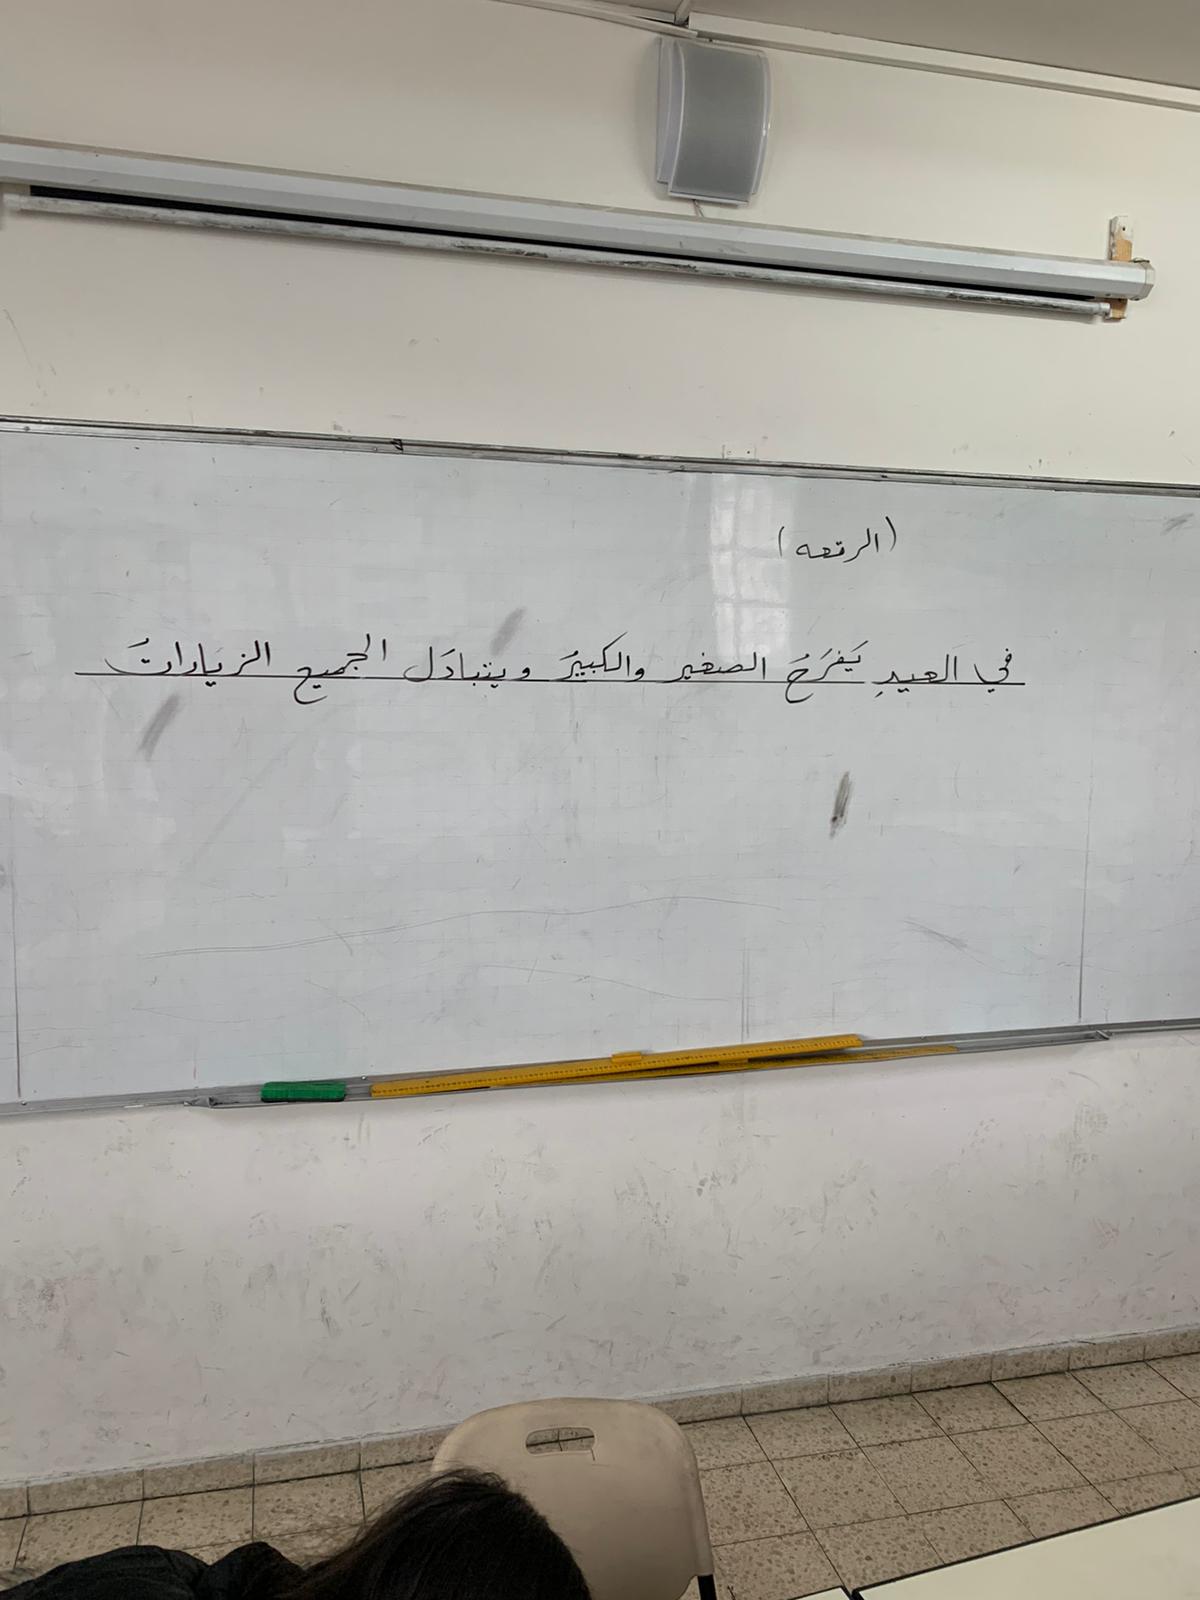 (الرقعه)
في العيدِ يَفرَحُ الصغير والكبيرُ ويتبادَل الجميع الزيَاراتُ